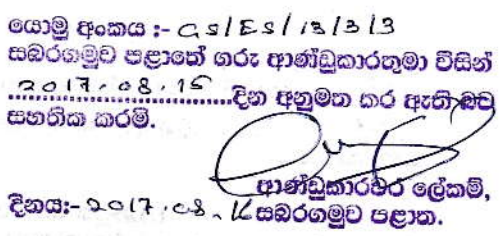 යොමු අංකය :- GS/ES/13/3/3
සබරගමුව පළාතේ ගරු ආණ්ඩුකාරතුමා විසින්
2017.08.15 දින අනුමත කර ඇති බව
සහතික කරමි.
ආණ්ඩුකාරවර ලේකම්,
දිනය:- 2017.08.16 සබරගමුව පළාත.